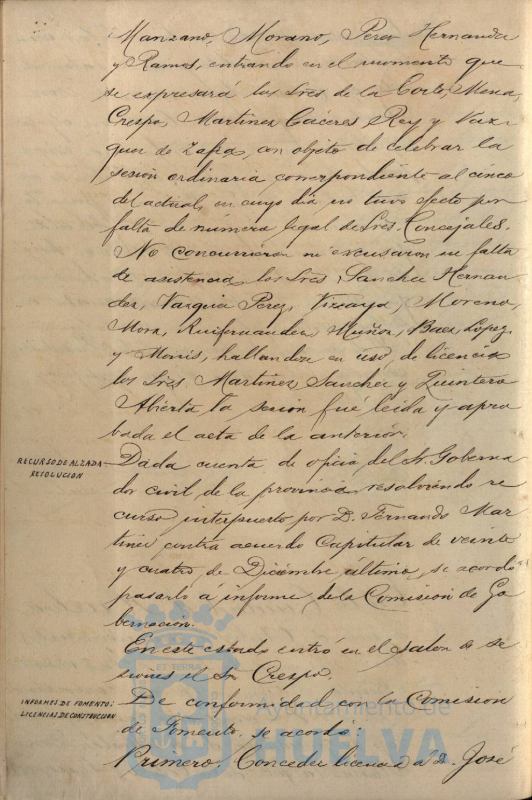 Manzano, Morano, Perez Hernandez
y Ramos, entrando en el momento que
se expresara los Sres de la Corte, Mena,
Crespo, Martinez Caceres Rey y Vaz-
quez de Zafra, con objeto de celebrar la
sesion ordinaria correspondiente al cinco
del actual, en cuyo dia no tuvo efecto por
falta de número legal de Sres. Concejales.
No concurrieron ni excusaron su falta
de asistencia los Sres Sanchez Hernan-
dez, Vazquez Perez, Vizcaya, Moreno,
Mora, Ruifernandez Muñoz, Baez, Lopez,
y Morris, hallandose en uso de licencia
los Sres Martinez Sanchez y Quintero
Abierta la sesion fué leida y apro
bada el acta de la anterior.
RECURSO DE ALZADA
RESOLUCION
Dada cuenta de oficio del Sr. Goberna
dor civil de la provincia resolviendo re
curso interpuesto por D. Fernando Mar
tinez contra acuerdo Capitular de veinte
y cuatro de Diciembre último, se acordó
pasarlo a informe de la Comision de Go
bernación.
En este estado entró en el salon de se
siones el Sr. Crespo.
INFORMES DE FOMENTO:
LICENCIAS DE CONSTRUCCION
De conformidad con la Comision
de Fomento, se acordó:
Primero. Conceder licencia a D. José
ET TERRÆ
Ayuntamiento de
HUELVA